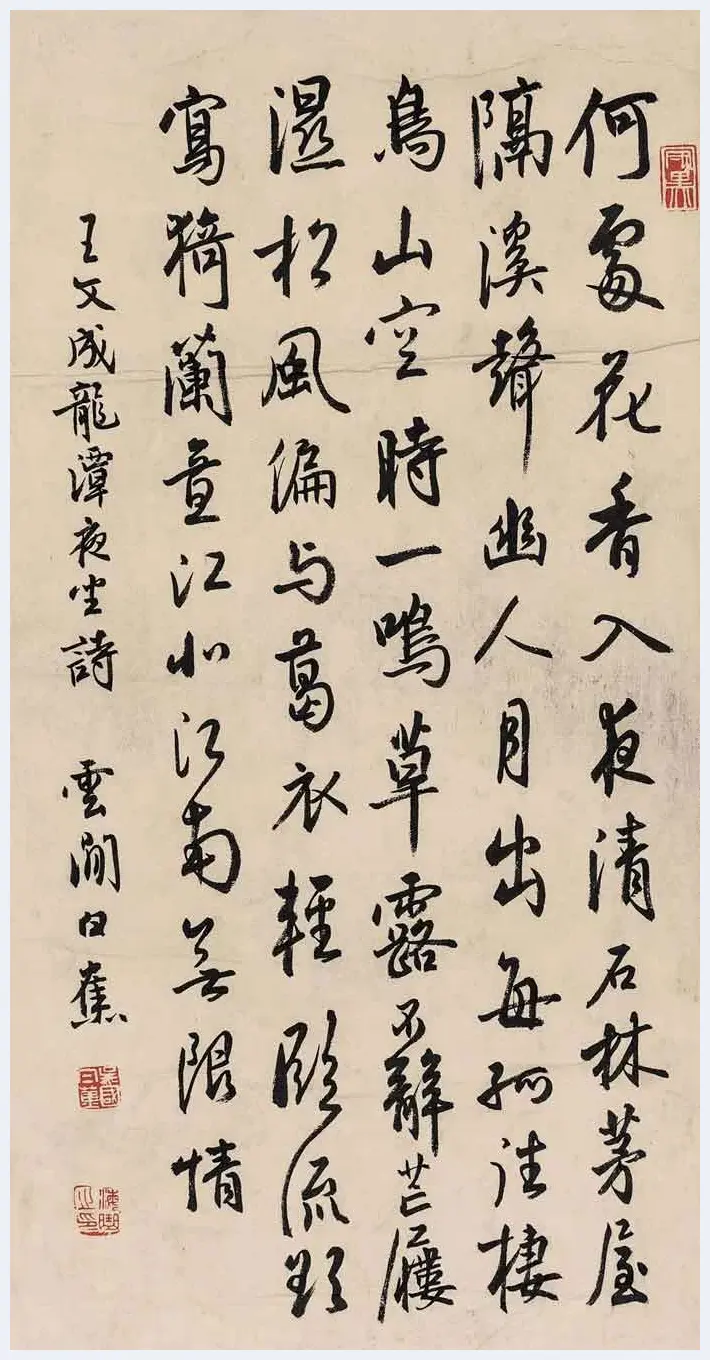 何處花香入夜清石林茅屋
隔溪聲幽人月出每孤往棲
鳥山空時一鳴草露不辭芒屨
濕松風偏与葛衣輕臨流欲
寫猗蘭意江北江南無限情
王文成龍潭夜坐詩 雲間白蕉